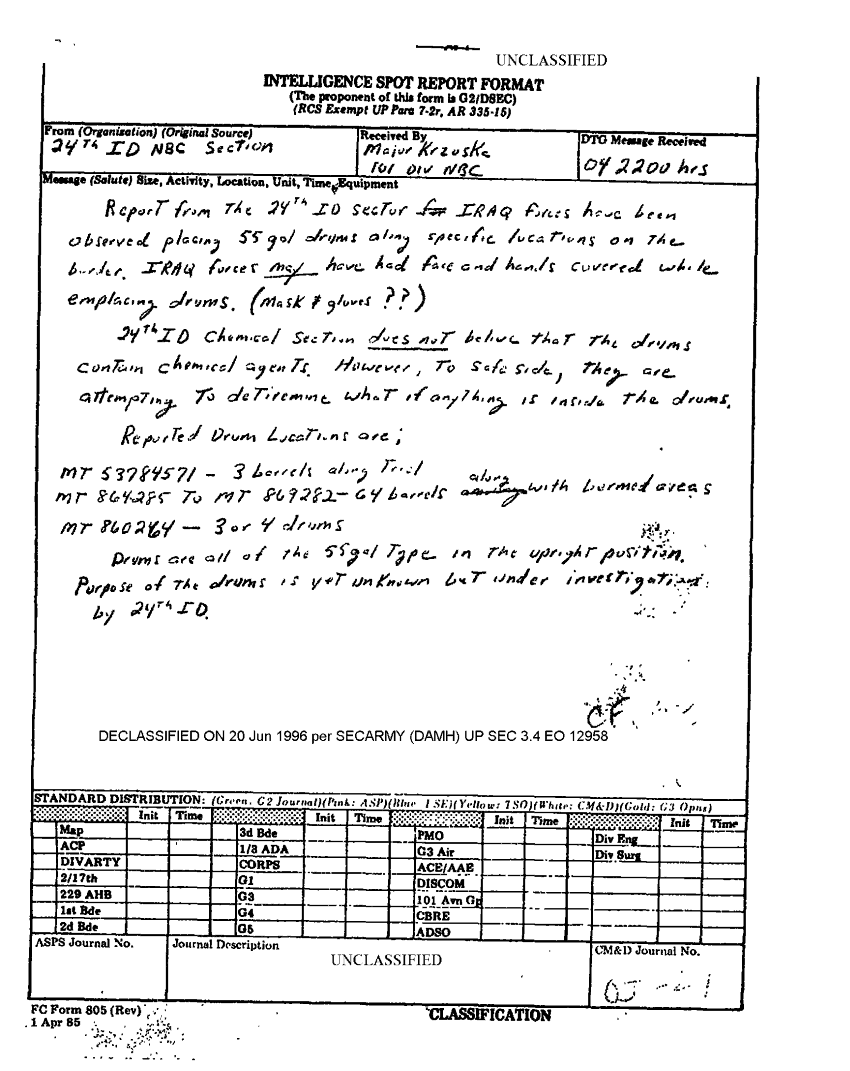 UNCLASSIFIED
INTELLIGENCE SPOT REPORT FORMAT
(The proponent of this form is G2/DSEC)
(RCS Exempt UP Para 7-2r, AR 335-15)
From (Organization) (Original Source)
24Th ID NBC Section
Received By
Major Krzuske
101 DIV NBC
DTG Message Received
04 2200 hrs
Message (Salute) Size, Activity, Location, Unit, Time, Equipment
Report from The 24Th ID Sector IRAQ forces have been
observed placing 55 gal drums along specific locations on The
border. IRAQ forces may have had face and hands covered while
emplacing drums. (Mask & gloves ??)
24Th ID Chemical Section does not belive that The drums
contain chemical agents. However, To Safe side, They are
attempting To deTiremine what if anything is inside The drums.
Reported Drum Locations are;
MT 53784571 - 3 barrels along Trail
MT 864285 To MT 869282 - 64 barrels along with bermed areas
MT 860264 - 3 or 4 drums
Drums are all of the 55gal Type in The upright position.
Purpose of The drums is yet unknown but under investigation
by 24Th ID.
CF
DECLASSIFIED ON 20 Jun 1996 per SECARMY (DAMH) UP SEC 3.4 EO 12958
STANDARD DISTRIBUTION: (Green, G2 Journal)(Pink: ASP)(Blue: SE)(Yellow: TSO)(White: CM&D)(Gold: G3 Opns)
Init Time Init Time Init Time Init Time
Map 3d Bde PMO Div Eng
ACP 1/3 ADA G3 Air Div Surg
DIVARTY CORPS ACE/AAE
2/17th G1 DISCOM
229 AHB G3 101 Avn Gp
1st Bde G4 CBRE
2d Bde G5 ADSO
ASPS Journal No.
Journal Description
CM&D Journal No.
UNCLASSIFIED
FC Form 805 (Rev)
1 Apr 85
CLASSIFICATION